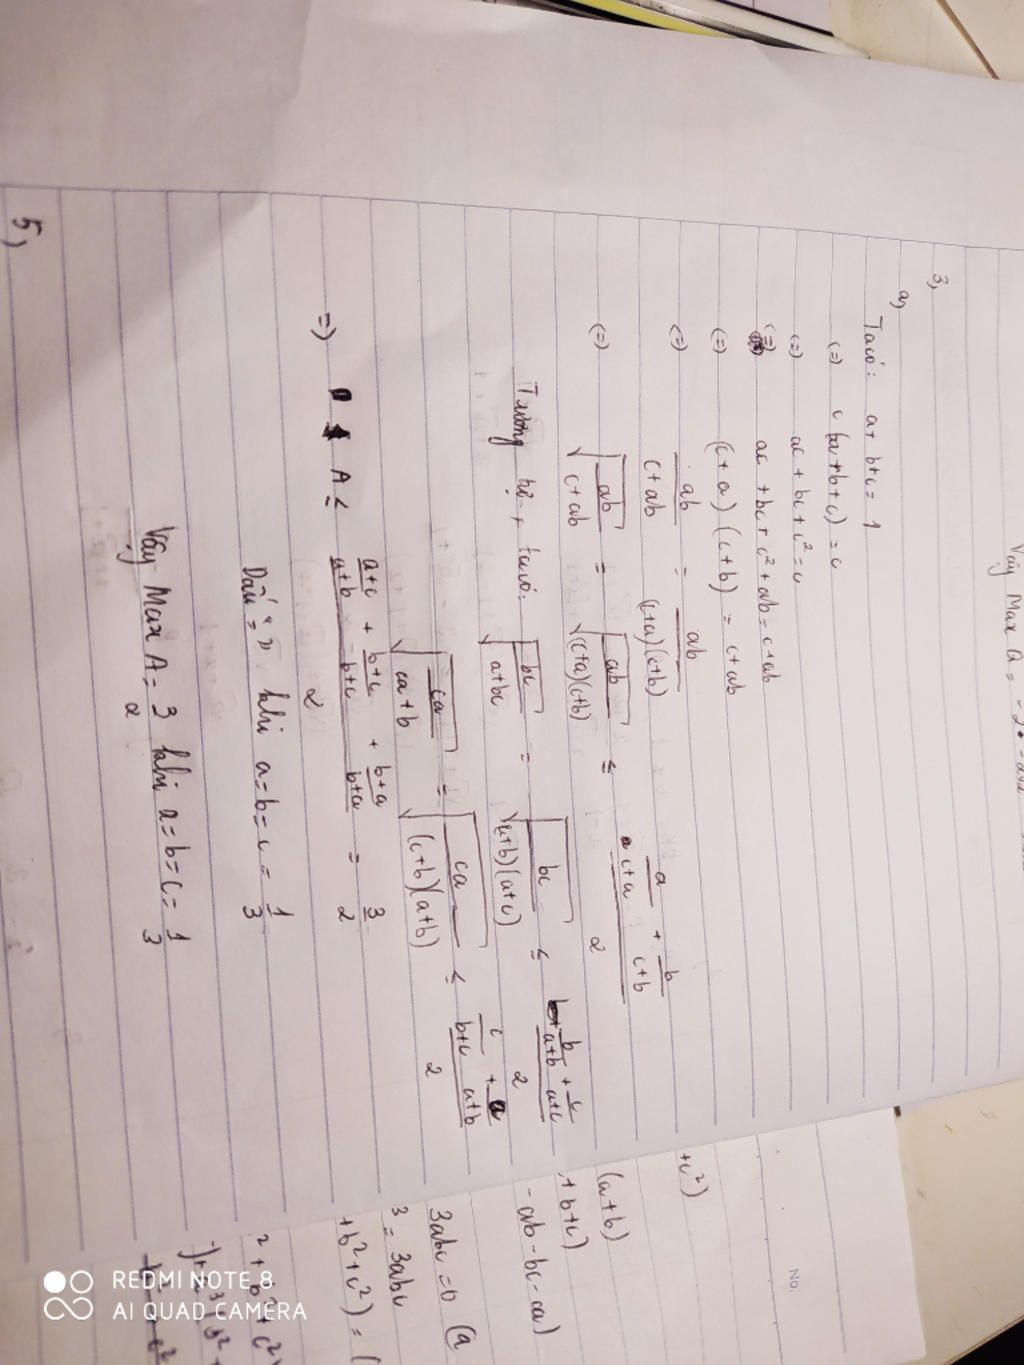 Vậy Max
3,
a,
Ta có: a + b + c = 1
(=) c (a + b + c) = c
(=) ac + bc + c² = c
(=) ac + bc + c² + ab = c + ab
(=) (c + a) (c + b) = c + ab
(=) ab/(c + ab) = ab/((c+a)(c+b))
(=) √(ab/(c + ab)) = √(ab/((c+a)(c+b))) ≤ (a/(c+a) + b/(c+b))/2
Tương tự, ta có: √(bc/(a+bc)) = √(bc/((a+b)(a+c))) ≤ (b/(a+b) + c/(a+c))/2
√(ca/(ca+b)) = √(ca/((c+b)(a+b))) ≤ (c/(b+c) + a/(a+b))/2
=) A ≤ ((a+c)/(a+b) + (b+c)/(b+c) + (b+a)/(b+a))/2 = 3/2
Dấu "=" khi a = b = c = 1/3
Vậy Max A = 3/2 khi a = b = c = 1/3
5,
No.
+c²)
(a+b)
+b+c)
- ab - bc - ca)
3abc = 0 (a
3 = 3abc
+ b² + c²) = (
² + b² + c²)
REDMI NOTE 8
AI QUAD CAMERA